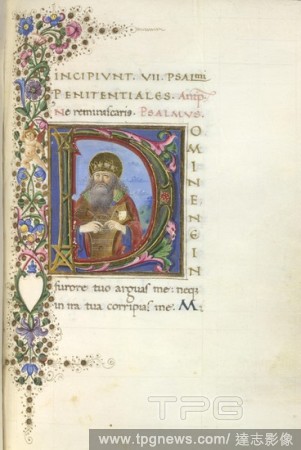 INCIPIUNT. VII. PSALMI
PENITENTIALES. Antiph
Ne reminiscaris. PSALMUS.
DOMINE NE IN
furore tuo arguas me: neq
in ira tua corripias me. M:
TPG
www.tpgnews.com/ 達志影像